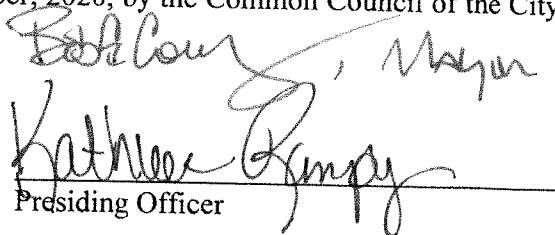 ber, 2020, by the Common Council of the City
, Mayor
Kathleen
Presiding Officer